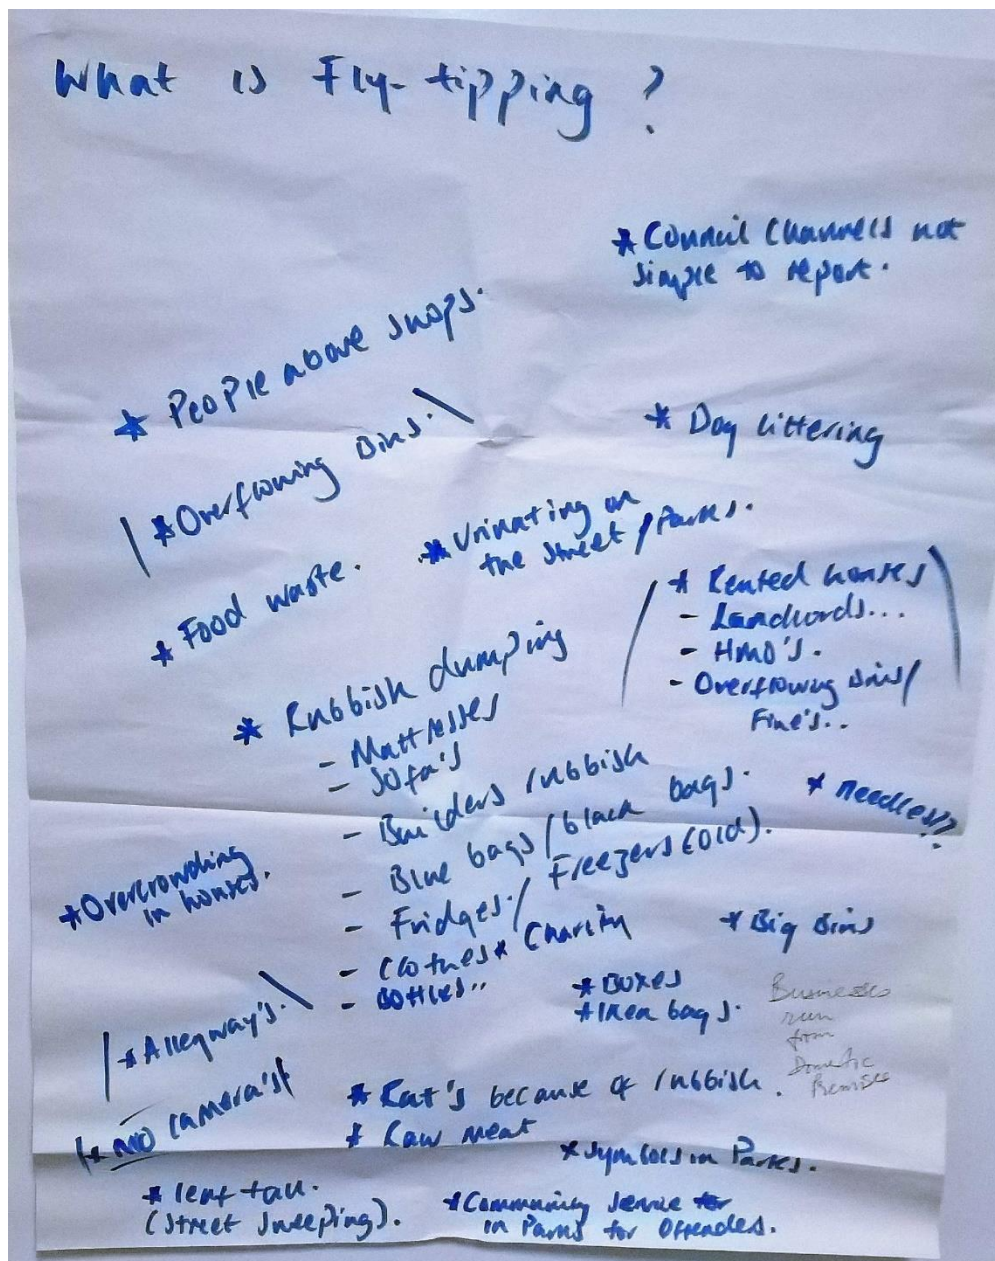 What is Fly-tipping ?
* Council Channels not
simple to report.
* People above shops.
* Overflowing Bins.
* Dog littering
* Urinating on
the street / Parks.
* Food waste.
* Rented houses
- Landlords...
- HMO's.
- Overflowing bins/
Fine's..
* Rubbish dumping
- Mattresses
- Sofa's
- Builders rubbish
- Blue bags / black bags.
- Fridges / Freezers (old).
- Clothes * Charity
- Bottles"
* needles??
* Overcrowding
in houses.
* Big Bins
* Boxes
* Ikea bags.
Businesses
run
from
Domestic
Premises
* Alleyway's.
* NO camera's
* Rat's because of rubbish.
* Raw meat
* Symbols in Parks.
* leaf fall.
(Street Sweeping).
* Community Service for
in Parks for Offenders.